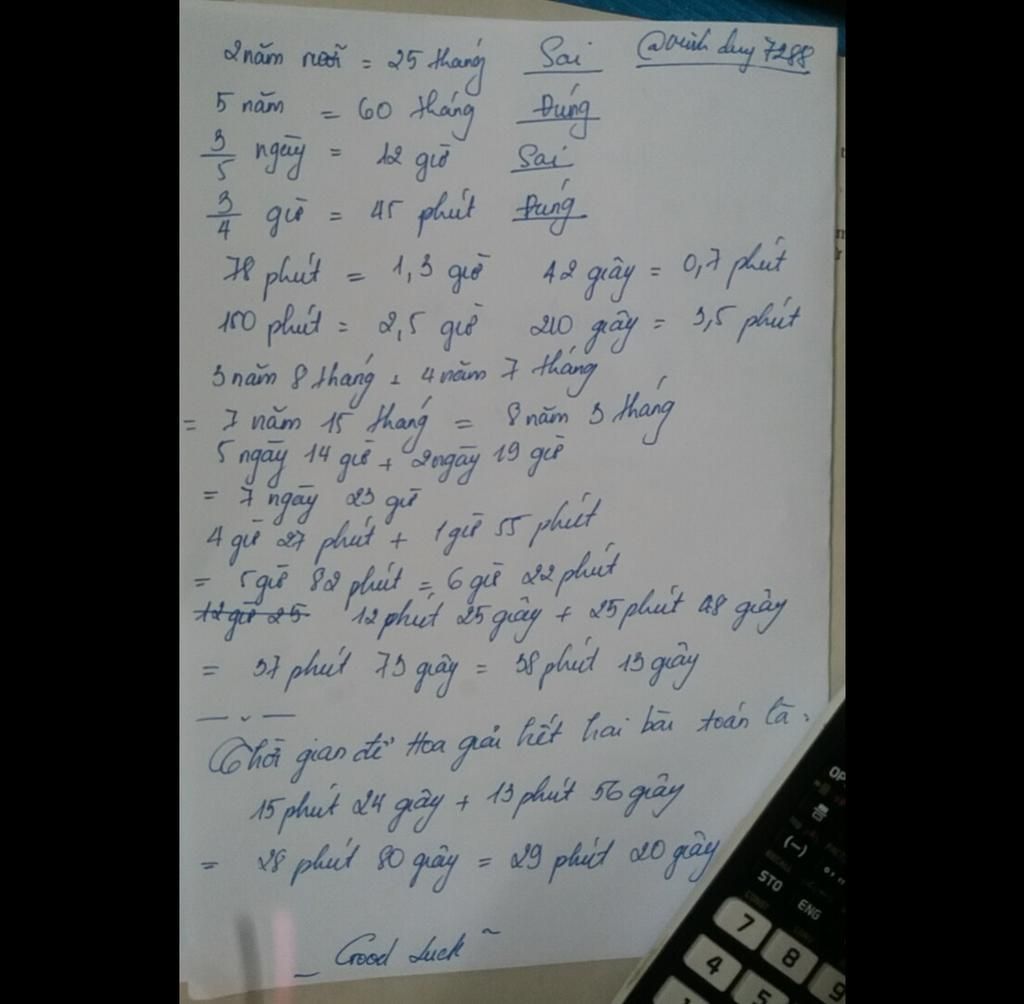 2 năm rưỡi = 25 tháng Sai @minh duy 7288
5 năm = 60 tháng Đúng
3/5 ngày = 12 giờ Sai
3/4 giờ = 45 phút Đúng
78 phút = 1,3 giờ 42 giây = 0,7 phút
150 phút = 2,5 giờ 210 giây = 3,5 phút
3 năm 8 tháng + 4 năm 7 tháng
= 7 năm 15 tháng = 8 năm 3 tháng
5 ngày 14 giờ + 2 ngày 19 giờ
= 7 ngày 23 giờ
4 giờ 27 phút + 1 giờ 55 phút
= 5 giờ 82 phút = 6 giờ 22 phút
12 giờ 25 12 phút 25 giây + 25 phút 48 giây
= 37 phút 73 giây = 38 phút 13 giây
Thời gian để Hoa giải hết hai bài toán là:
15 phút 24 giây + 13 phút 56 giây
= 28 phút 80 giây = 29 phút 20 giây
_ Good Luck ~
OP
(−)
STO ENG
7 8 9
4 5
1